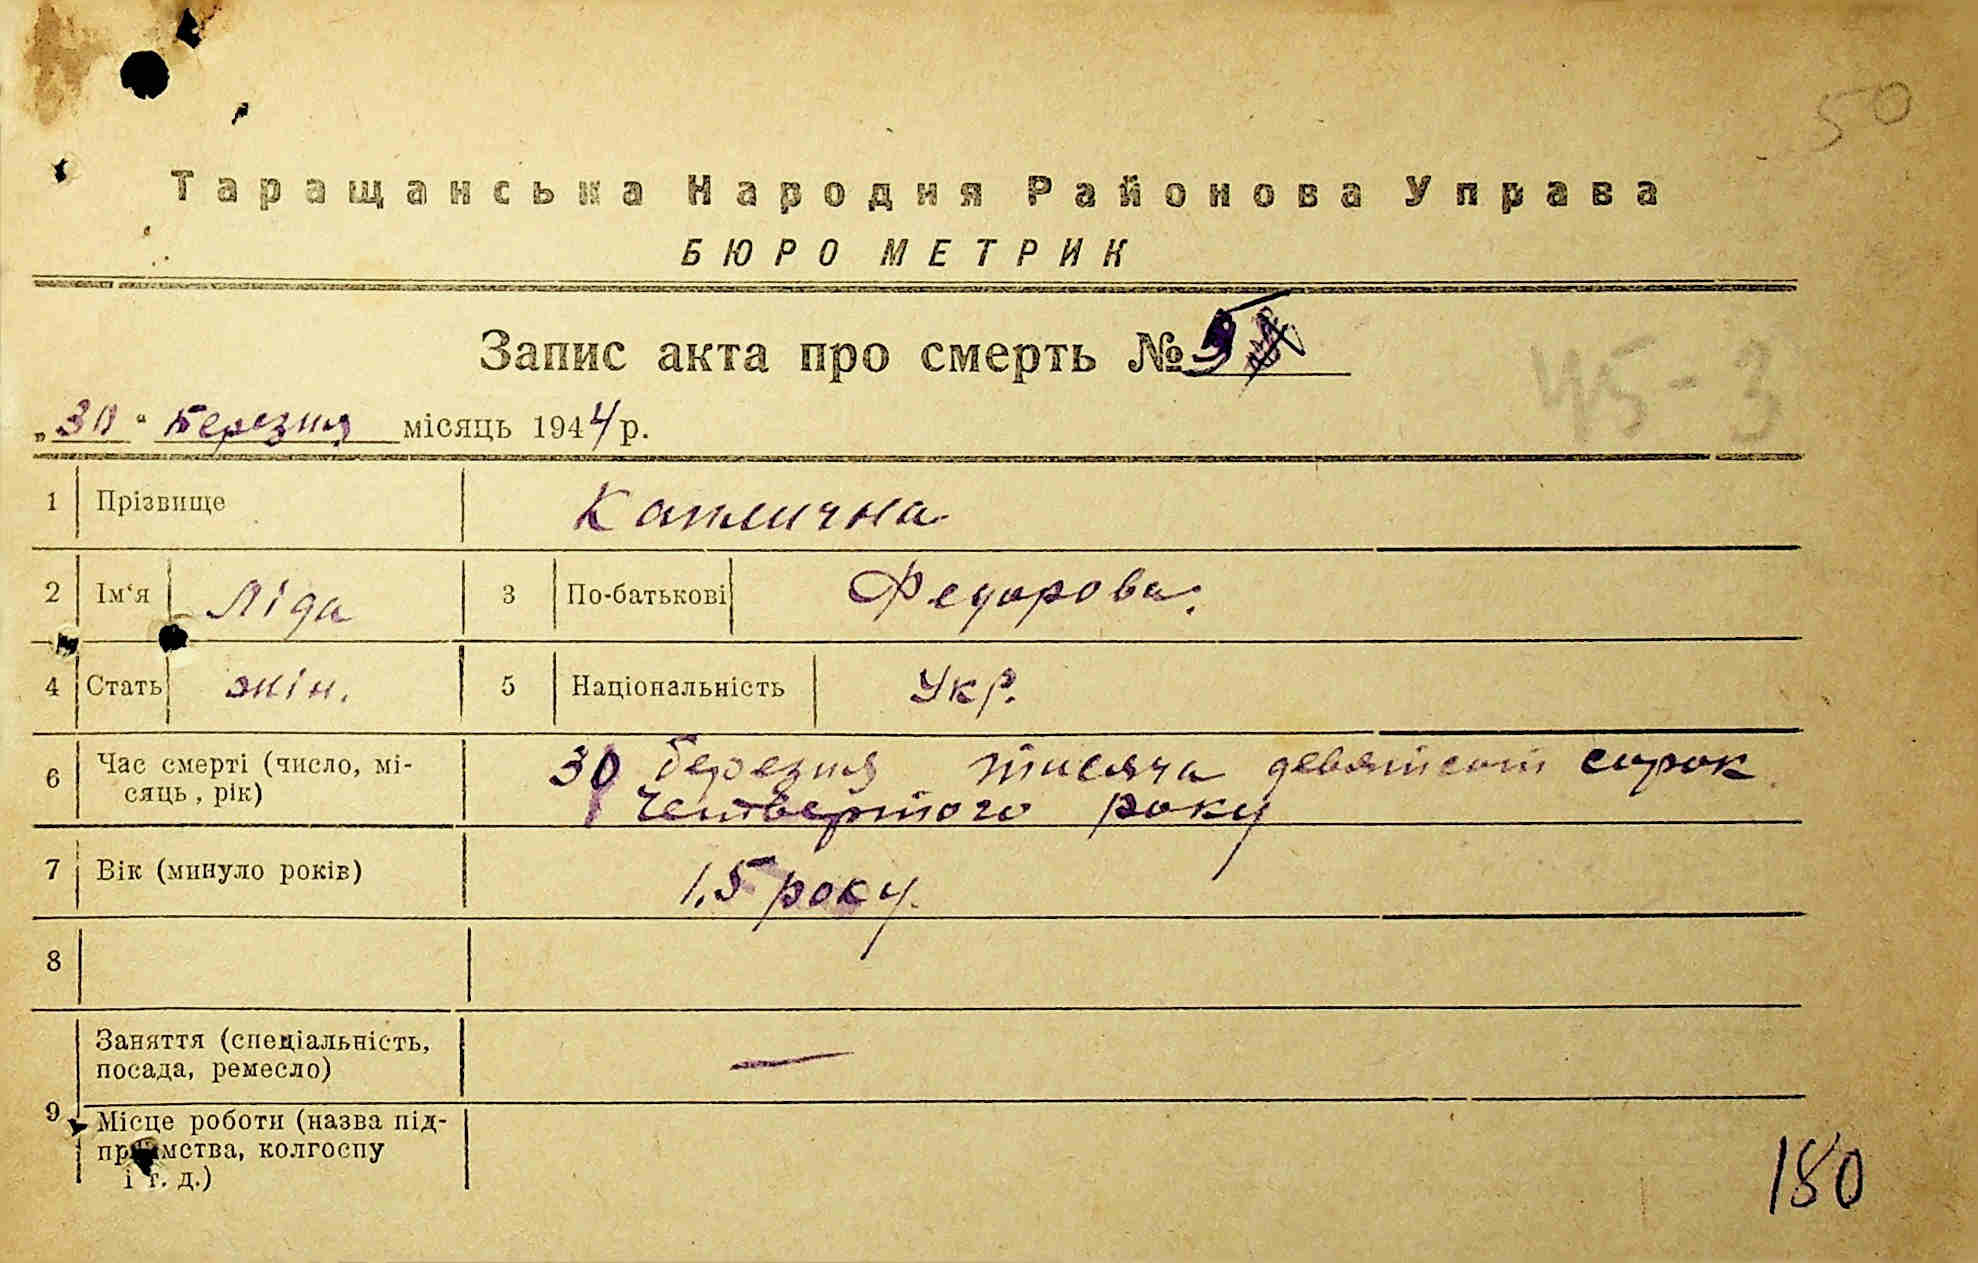 50
Таращанська Народня Районова Управа
БЮРО МЕТРИК
Запис акта про смерть № 5
45-3
„30“ березня місяць 1944 р.
1 Прізвище Капличн​а
2 Ім‘я Ліда 3 По-батькові Федорова.
4 Стать жін. 5 Національність Укр.
6 Час смерті (число, мі-
сяць, рік) 30 березня тисяча девятсот сорок
четвертого року
7 Вік (минуло років) 1,5 року.
8
Заняття (спеціальність,
посада, ремесло) —
9 Місце роботи (назва під-
приємства, колгоспу
і т. д.)
180